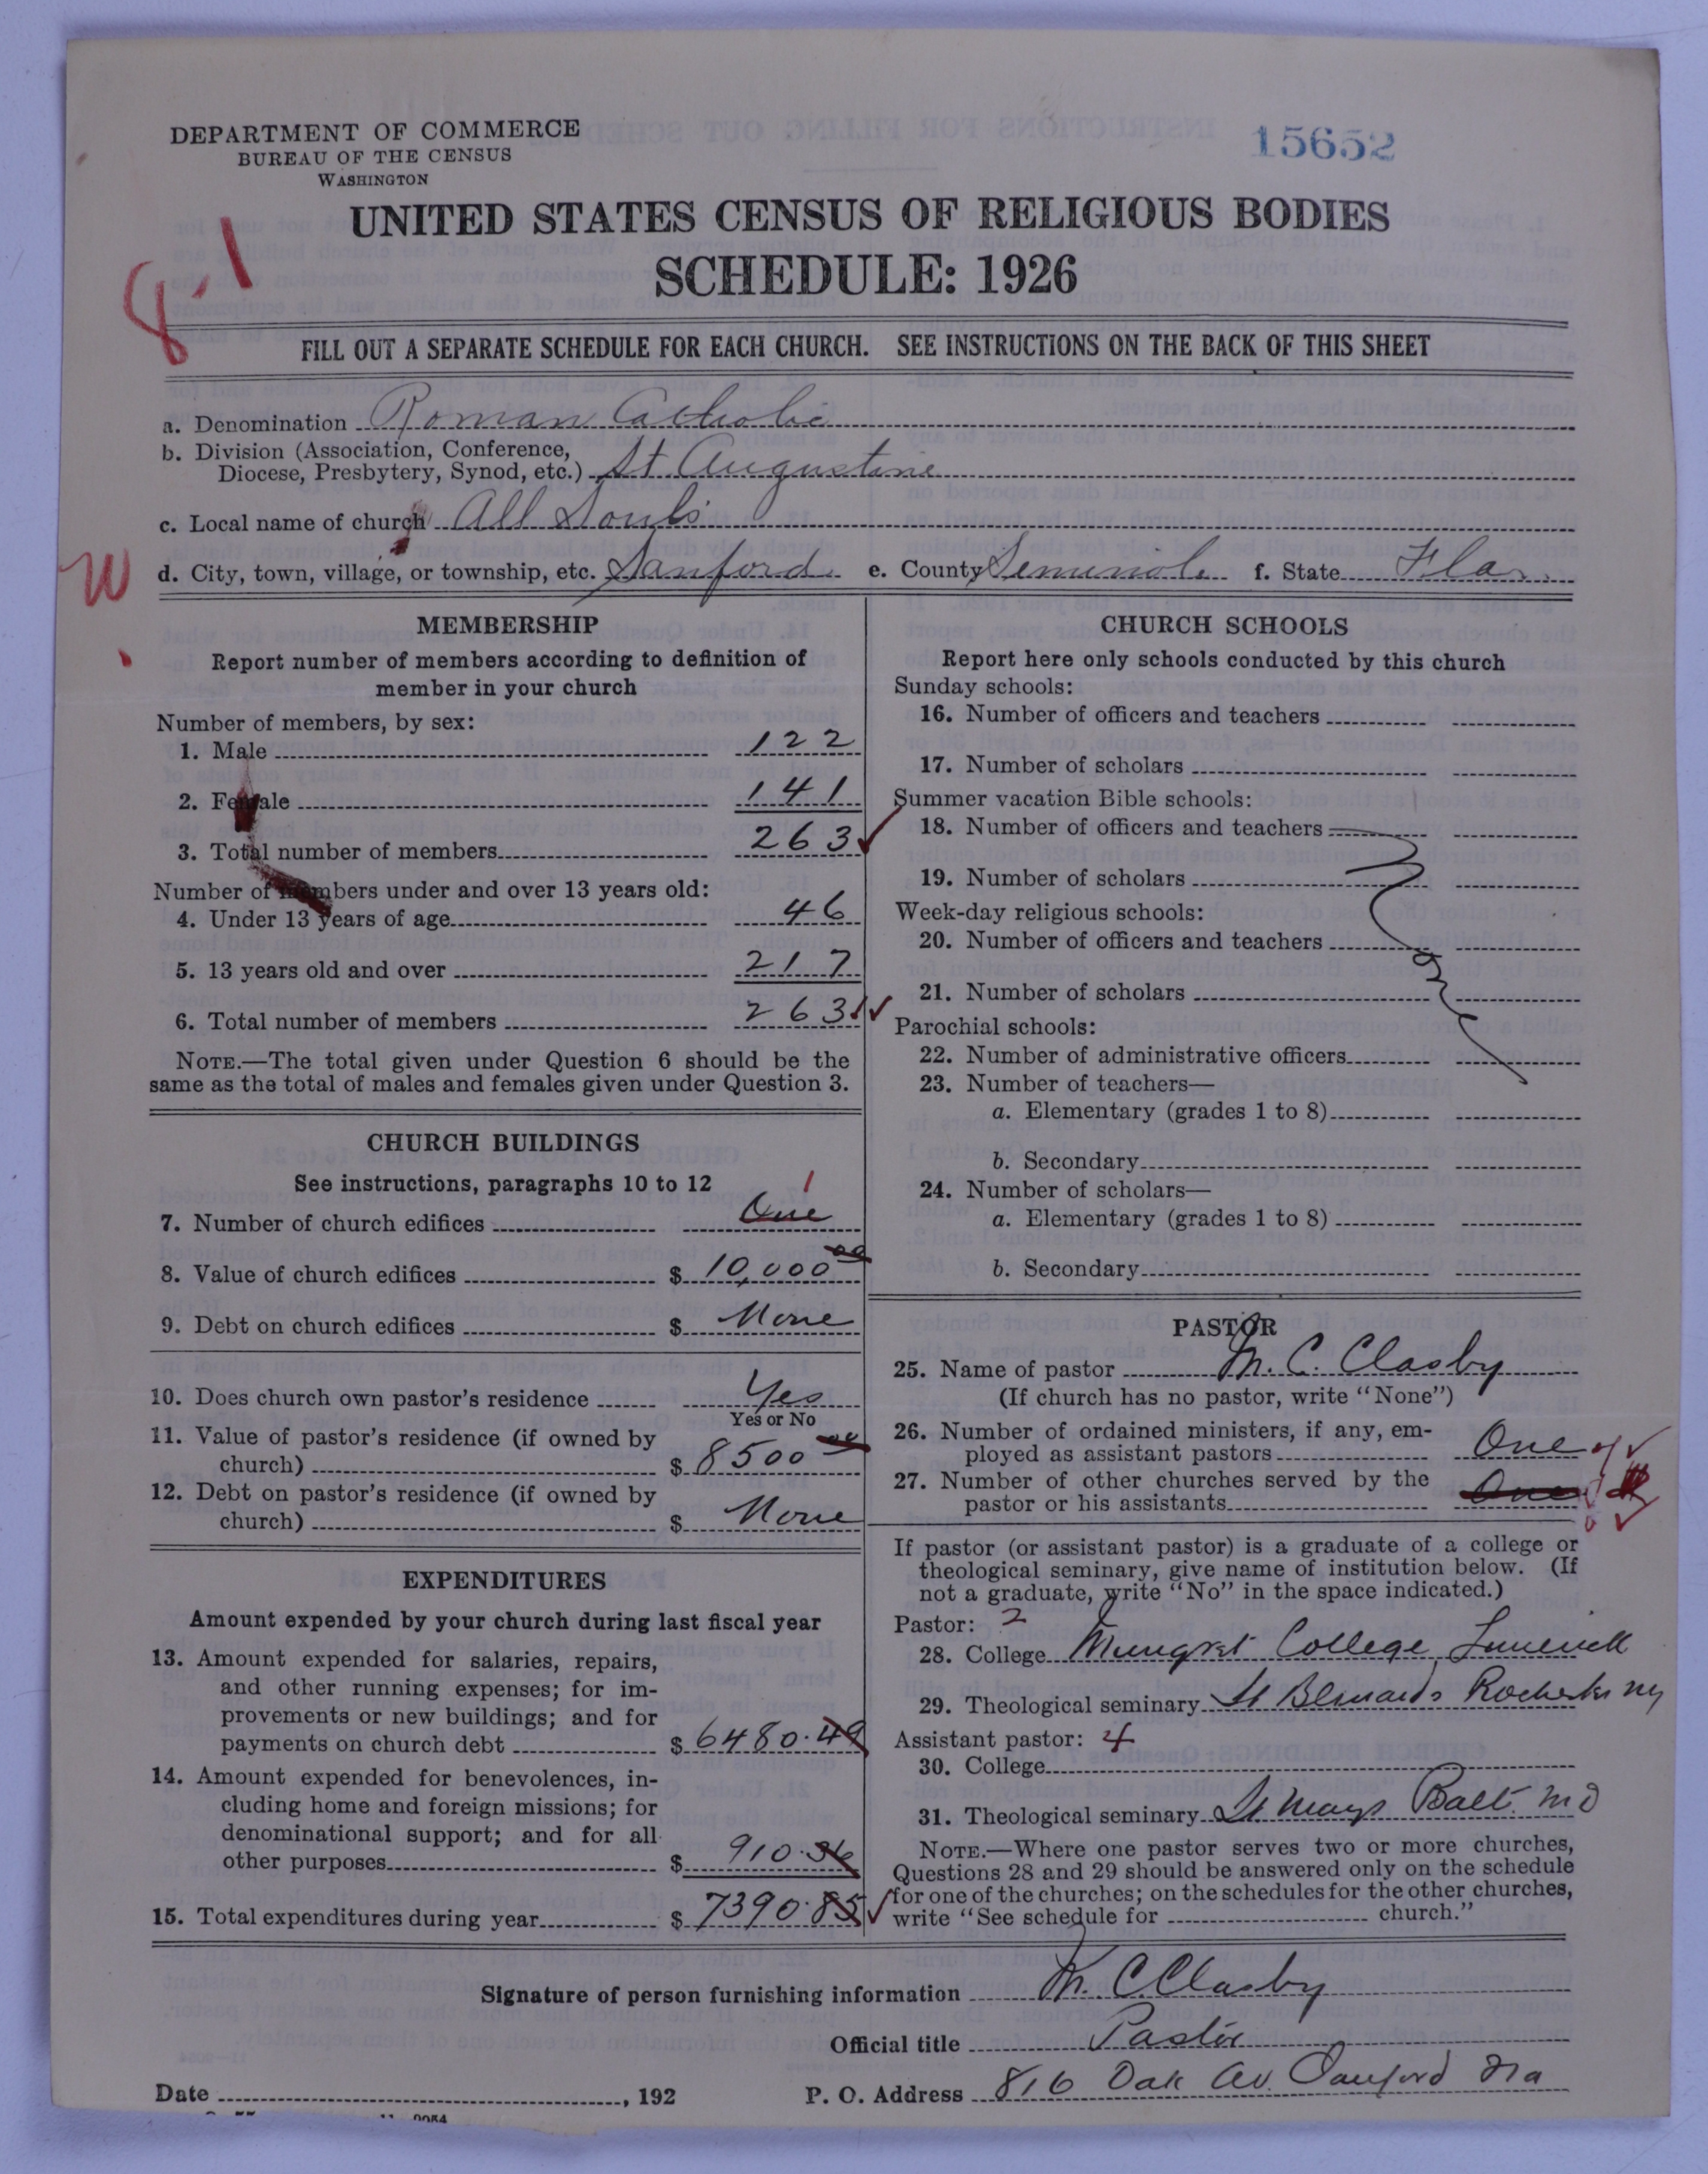 DEPARTMENT OF COMMERCE
BUREAU OF THE CENSUS
WASHINGTON
15652
UNITED STATES CENSUS OF RELIGIOUS BODIES
SCHEDULE: 1926
8-1
FILL OUT A SEPARATE SCHEDULE FOR EACH CHURCH. SEE INSTRUCTIONS ON THE BACK OF THIS SHEET
a. Denomination Roman Catholic
b. Division (Association, Conference,
Diocese, Presbytery, Synod, etc.) St Augustine
c. Local name of church All Souls
W
d. City, town, village, or township, etc. Sanford e. County Seminole f. State Fla.
MEMBERSHIP
Report number of members according to definition of
member in your church
Number of members, by sex:
1. Male 122
2. Female 141
3. Total number of members 263
Number of members under and over 13 years old:
4. Under 13 years of age 46
5. 13 years old and over 217
6. Total number of members 263
NOTE.—The total given under Question 6 should be the
same as the total of males and females given under Question 3.
CHURCH BUILDINGS
See instructions, paragraphs 10 to 12
1
7. Number of church edifices One
8. Value of church edifices $ 10,000 00
9. Debt on church edifices $ None
10. Does church own pastor's residence Yes
Yes or No
11. Value of pastor's residence (if owned by
church) $ 8500 00
12. Debt on pastor's residence (if owned by
church) $ None
EXPENDITURES
Amount expended by your church during last fiscal year
13. Amount expended for salaries, repairs,
and other running expenses; for im-
provements or new buildings; and for
payments on church debt $ 6480.49
14. Amount expended for benevolences, in-
cluding home and foreign missions; for
denominational support; and for all
other purposes $ 910.36
15. Total expenditures during year $ 7390.85
CHURCH SCHOOLS
Report here only schools conducted by this church
Sunday schools:
16. Number of officers and teachers
17. Number of scholars
Summer vacation Bible schools:
18. Number of officers and teachers
19. Number of scholars
Week-day religious schools:
20. Number of officers and teachers
21. Number of scholars
Parochial schools:
22. Number of administrative officers
23. Number of teachers—
a. Elementary (grades 1 to 8)
b. Secondary
24. Number of scholars—
a. Elementary (grades 1 to 8)
b. Secondary
PASTOR
25. Name of pastor M. C. Clasby
(If church has no pastor, write "None")
26. Number of ordained ministers, if any, em-
ployed as assistant pastors One
27. Number of other churches served by the
pastor or his assistants One
If pastor (or assistant pastor) is a graduate of a college or
theological seminary, give name of institution below. (If
not a graduate, write "No" in the space indicated.)
Pastor: 2
28. College Mungret College, Limerick
29. Theological seminary St Bernards Rochester NY
Assistant pastor: 4
30. College
31. Theological seminary St Marys Balt. Md
NOTE.—Where one pastor serves two or more churches,
Questions 28 and 29 should be answered only on the schedule
for one of the churches; on the schedules for the other churches,
write "See schedule for church."
Signature of person furnishing information M. C Clasby
Official title Pastor
Date , 192 P. O. Address 816 Oak Av. Sanford Fla